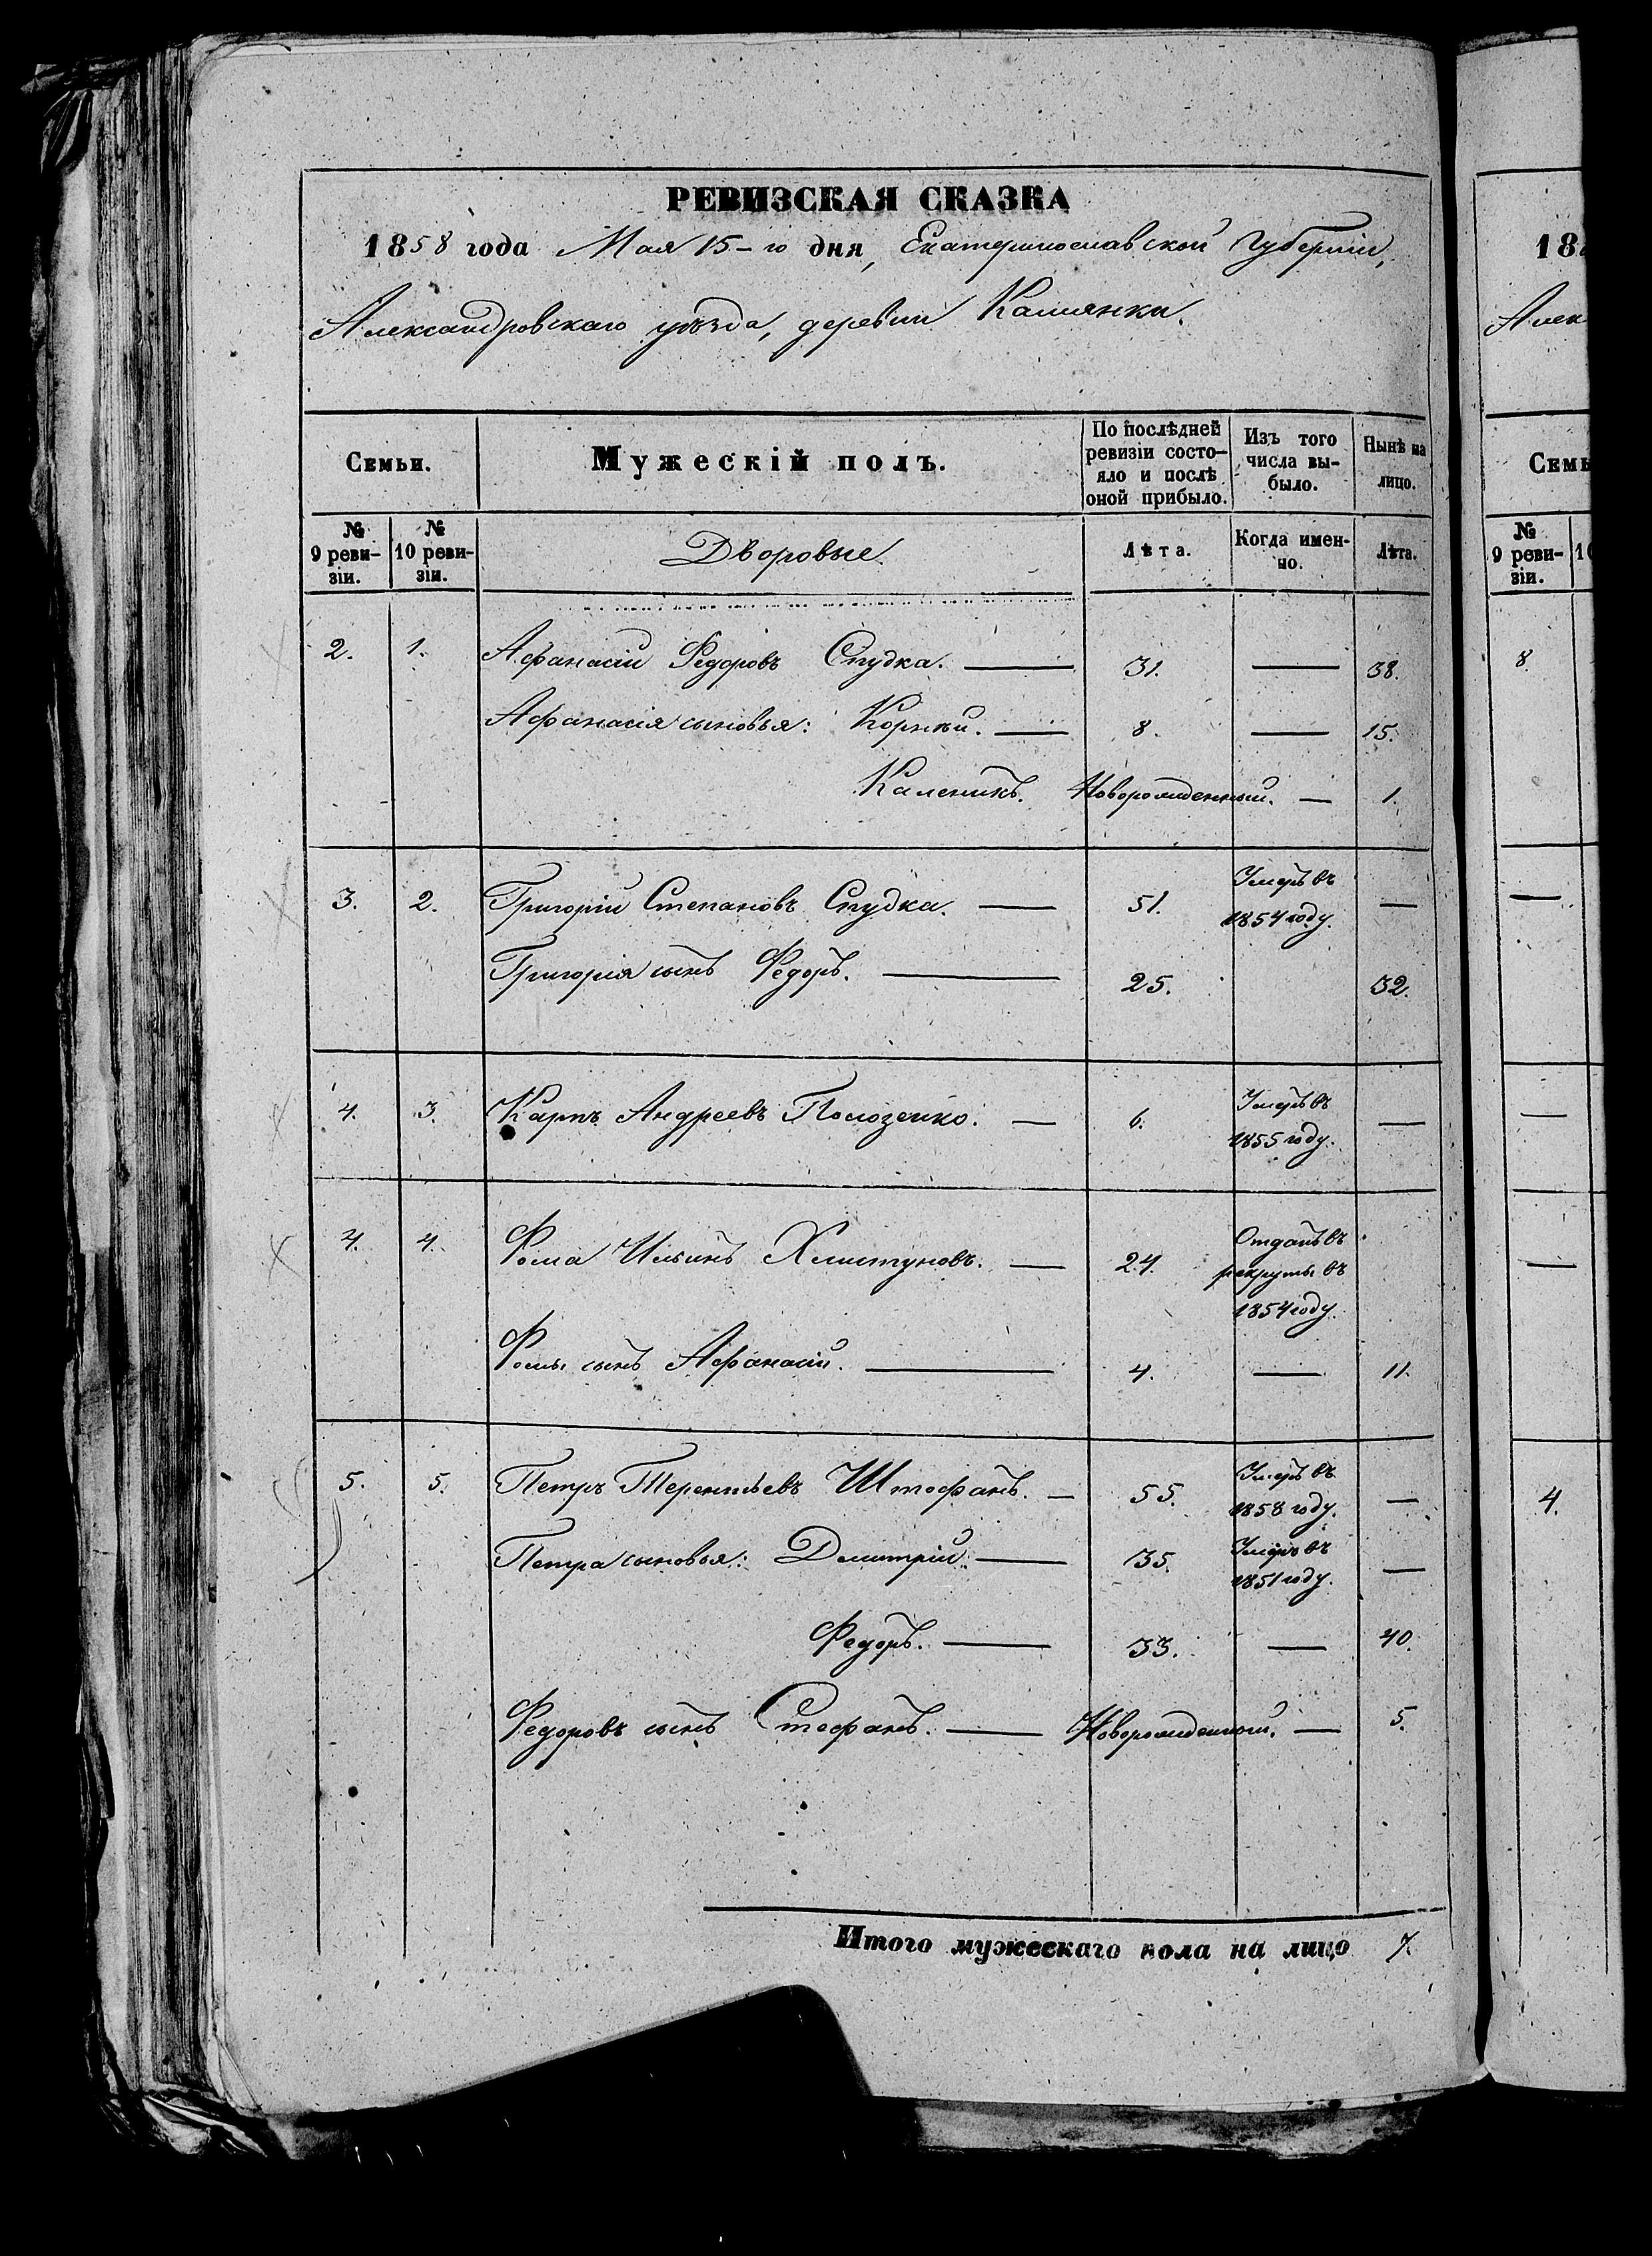 РЕВИЗСКАЯ СКАЗКА
1858 года Мая 15-го дня, Екатеринославской Губерніи,
Александровскаго уѣзда, деревни Камянки.
Семьи. Мужескій полъ. По послѣдней ревизіи состояло и послѣ оной прибыло. Изъ того числа выбыло. Нынѣ на лицо.
№ 9 ревизіи. № 10 ревизіи. Дворовые. Лѣта. Когда именно. Лѣта.
2. 1. Афанасій Федоровъ Спудка. — 31. — 38.
Афанасія сыновья: Корнѣй. — 8. — 15.
Каленикъ. Новорожденный. — 1.
3. 2. Григорій Степановъ Спудка. — 51. Умеръ въ 1854 году. —
Григорія сынъ Федоръ. — 25. 32.
4. 3. Карпъ Андреевъ Полозенко. — 6. Умеръ въ 1855 году. —
4. 4. Фома Ильинъ Хлистуновъ. — 24. Отданъ въ рекруты въ 1854 году.
Фомы сынъ Афанасій. — 4. — 11.
5. 5. Петръ Терентьевъ Штефанъ. — 55. Умеръ въ 1858 году. —
Петра сыновья: Дмитрій. — 35. Умеръ въ 1851 году. —
Федоръ. — 33. — 40.
Федоровъ сынъ Стефанъ. — Новорожденный. — 5.
Итого мужескаго пола на лицо 7.
18
Алек
Семь
№ 9 ревизіи. 10
8.
—
—
—
4.